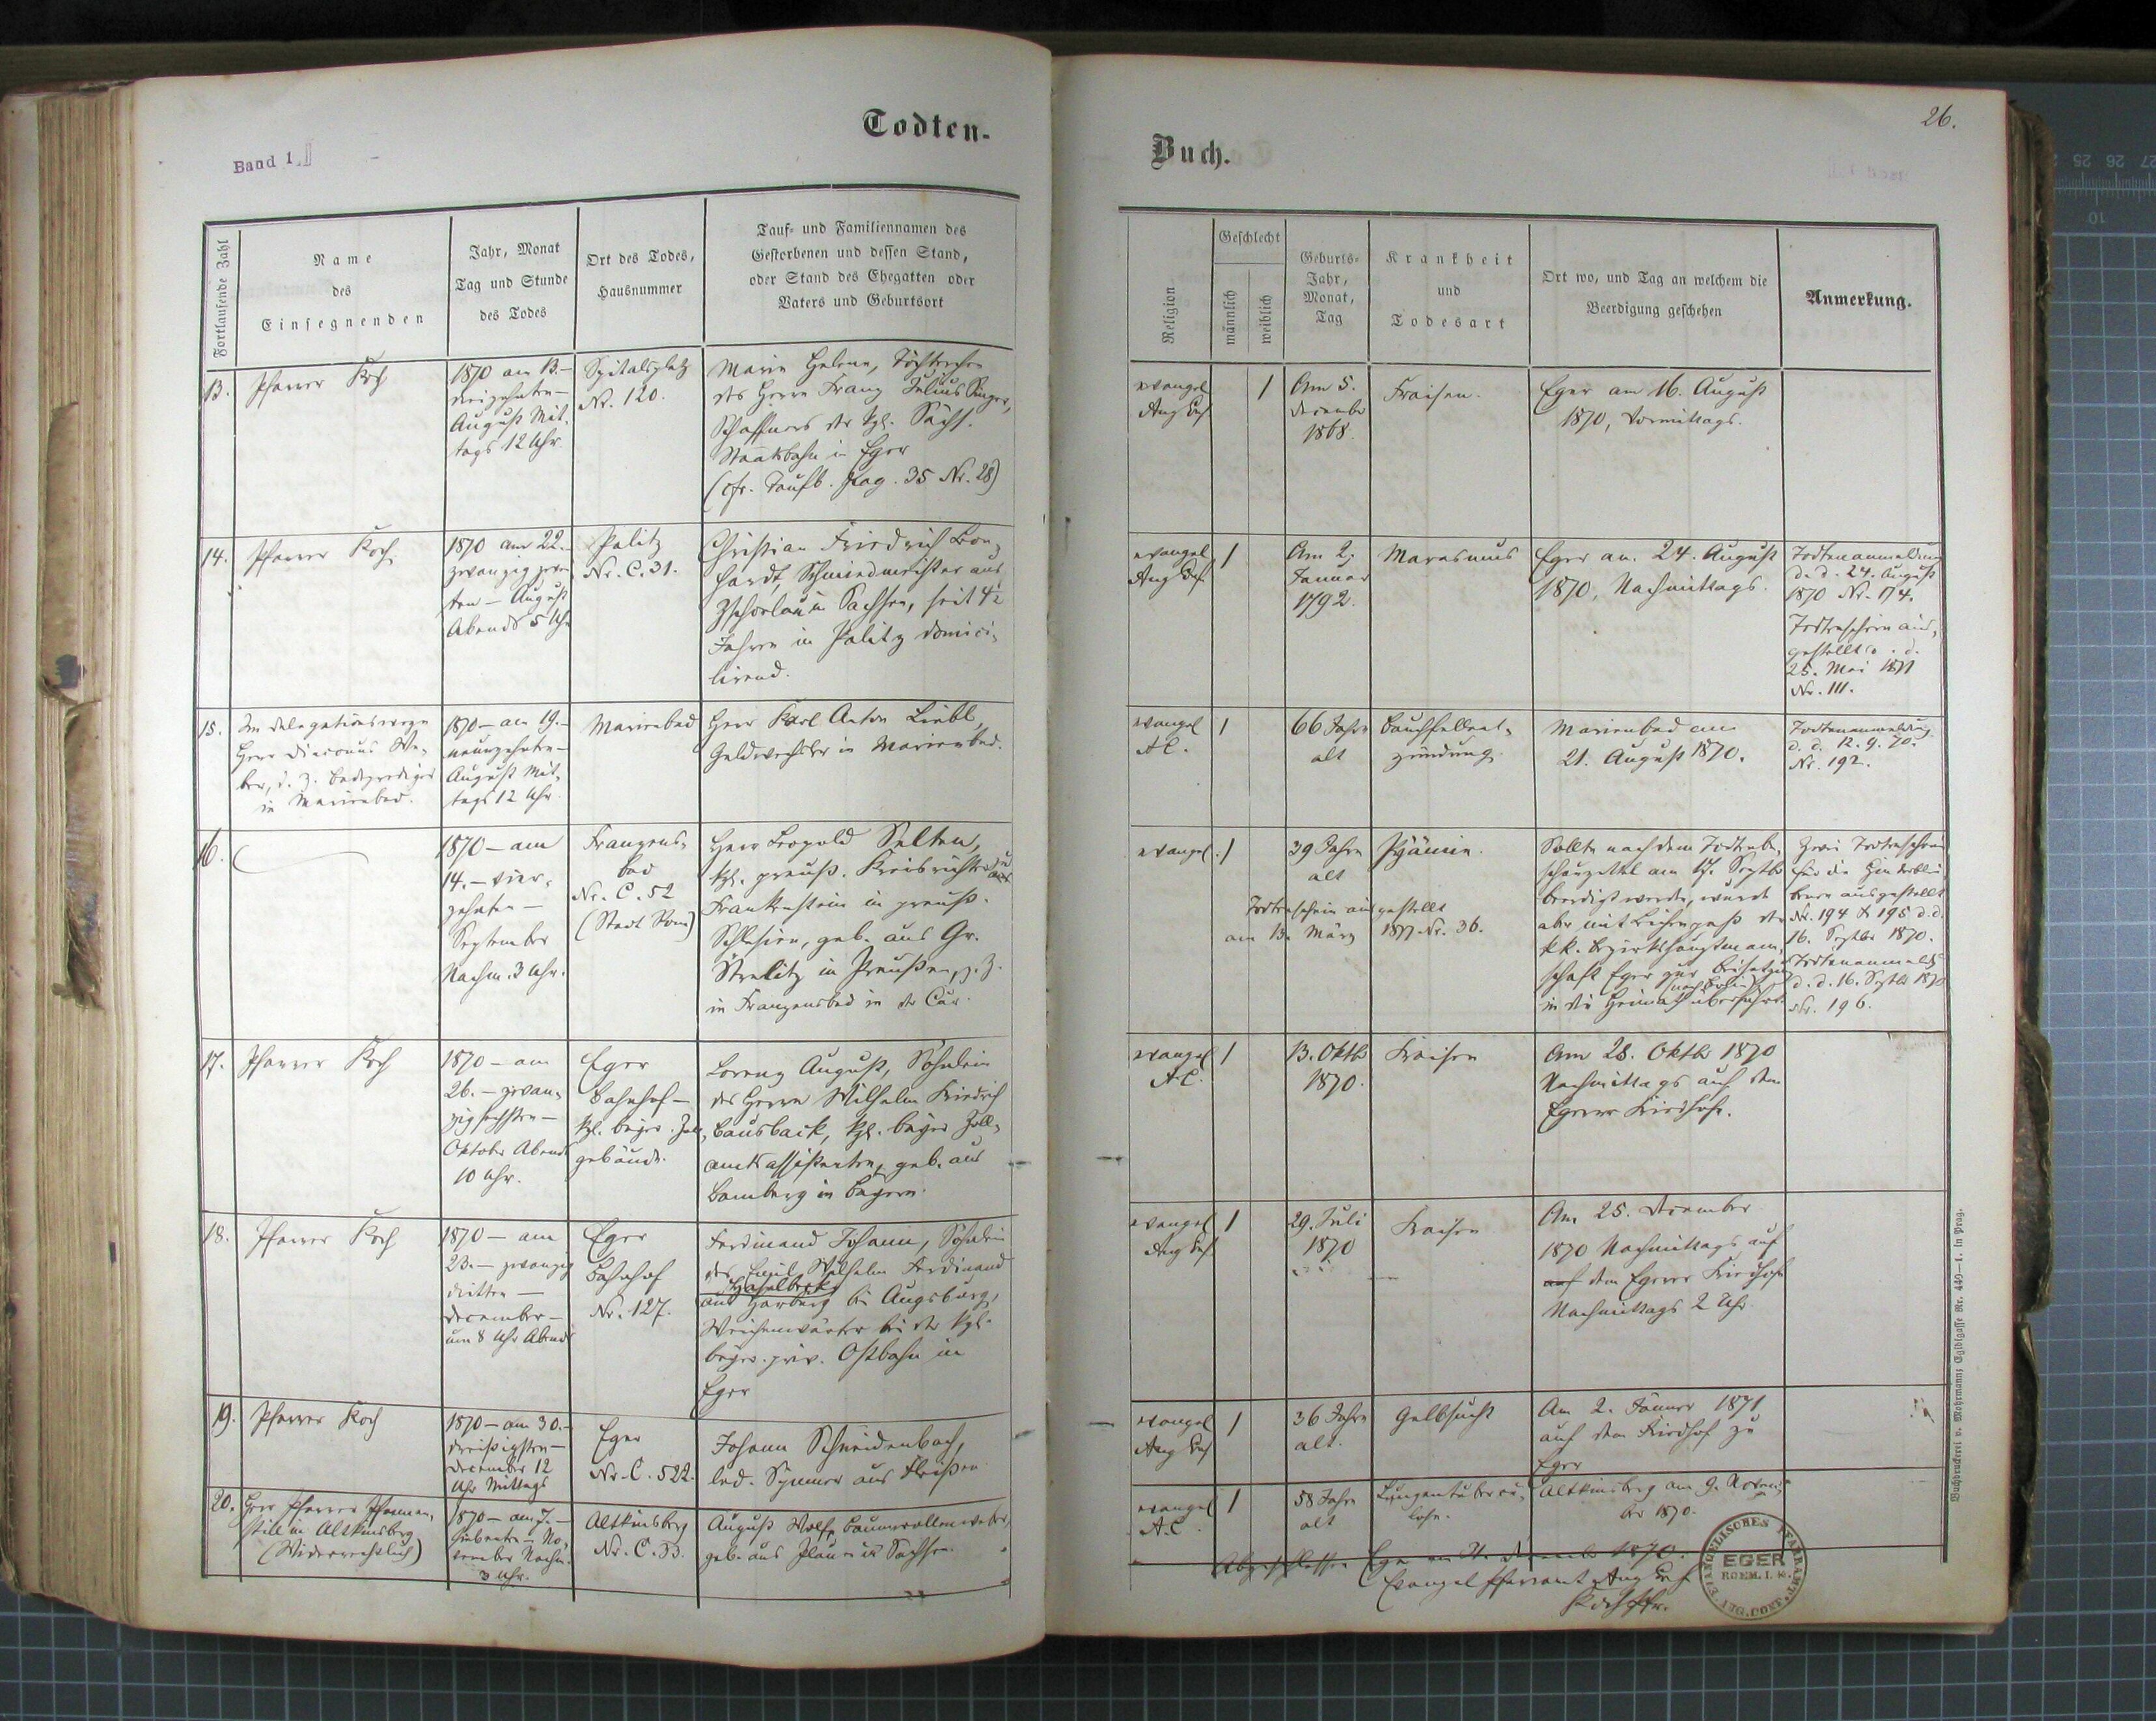 Band 1.
Todten-
Fortlaufende Zahl
Name
des
Einsegnenden
Jahr, Monat
Tag und Stunde
des Todes
Ort des Todes,
Hausnummer
Tauf- und Familiennamen des
Gestorbenen und dessen Stand,
oder Stand des Ehegatten oder
Vaters und Geburtsort
13.
Pfarrer Koch
1870 am 13.–
dreizehnten–
August Mit-
tags 12 Uhr.
Spitalplatz
Nr. 120.
Marie Helene, Töchterchen
des Herrn Franz Julius
Schaffners der kgl. Sächs.
Staatsbahn in Eger
(cfr. Taufb. Pag. 35 Nr. 28)
14.
Pfarrer Koch.
1870 am 22.–
zwanzig zwei-
ten – August
Abends 5 Uhr
Palitz
Nr. C. 31.
Christian Friedrich
Schmiedmeister aus
Zschorlau in Sachsen, seit 4½
Jahren in Palitz domici-
lirend.
15.
Im Delegationswege
Herr Diaconus We-
ber, d. Z. Badeprediger
in Marienbad.
1870 – am 19.–
neunzehnten–
August Mit-
tags 12 Uhr.
Marienbad
Herr Karl Anton Liebl,
Geldwechsler in Marienbad.
16.
1870 – am
14. – vier-
zehnten –
September
Nachm. 3 Uhr.
Franzens-
bad
Nr. C. 52
(Stadt Rom)
Herr Leopold Selten,
kgl. preuß. Kreisrichter
Frankenstein in preuß.
Schlesien, geb. aus Gr.
Strelitz in Preußen, z. Z.
in Franzensbad in der Cur.
17.
Pfarrer Koch
1870 – am
26. – zwan-
zigsechsten –
Oktober Abends
10 Uhr.
Eger
Bahnhof –
kgl. bayer. Zoll-
gebäude.
Lorenz August, Söhnlein
des Herrn Wilhelm Friedrich
Bausback, kgl. bayer Zoll-
amtsassistenten, geb. aus
Bamberg in Bayern.
18.
Pfarrer Koch
1870 – am
23. – zwanzig
dritten –
December –
um 8 Uhr Abends
Eger
Bahnhof
Nr. 127.
Ferdinand Johann, Söhnlein
des Emil Wilhelm Ferdinand
Haselbeck
aus Harburg bei Augsburg,
Weichenwärter bei der kgl.
bayer. priv. Ostbahn in
Eger
19.
Pfarrer Koch
1870 – am 30.–
dreißigsten –
December 12
Uhr Mittags
Eger
Nr. C. 522.
Johann Schneidenbach,
led. aus Fleißen
20.
Herr Pfarrer
in Altkinsberg
(Widerrechtlich)
1870 – am 7. –
siebenten – No-
vember Nachm.
3 Uhr.
Altkinsberg
Nr. C. 33.
August Wolf, Baumwollenweber,
geb. aus Plauen in Sachsen.
26.
Buch.
Religion
Geschlecht
männlich
weiblich
Geburts-
Jahr,
Monat,
Tag
Krankheit
und
Todesart
Ort wo, und Tag an welchem die
Beerdigung geschehen
Anmerkung.
evangel
Aug Conf
1
Am 5.
December
1868.
Fraisen.
Eger am 16. August
1870, Vormittags.
evangel
Aug Conf.
1
Am 2.
Januar
1792.
Marasmus
Eger am 24. August
1870, Nachmittags.
Todtenanmeldung
d. d. 24. August
1870 Nr. 174.
Todtenschein aus-
gestellt d. d.
25. Mai 1871
Nr. 111.
evangel
A.C.
1
66 Jahre
alt
Bauchfellent-
zündung.
Marienbad am
21. August 1870.
Todtenanmeldung
d. d. 12. 9. 70.
Nr. 192.
evangel.
1
39 Jahre
alt
Pyämie.
Todtenschein ausgestellt
am 13. März 1877 Nr. 36.
Sollte nach dem Todtenbe-
schauzettel am 17. Septbr
beerdigt werden, wurde
aber mit Leichenpaß der
k.k. Bezirkshauptmann-
schaft Eger zur Beisetzung
in die Heimath überführt.
Zwei Todtenscheine
für die Hinterblie-
benen ausgestellt
Nr. 194 & 195 d. d.
16. Septbr 1870.
Todtenanmeldg
d. d. 16. Septbr 1870
Nr. 196.
evangel
A.C.
1
13. Oktbr
1870.
Fraisen
Am 28. Oktbr 1870
Nachmittags auf dem
Egerer Friedhofe.
evangel
Aug Conf
1
29. Juli
1870
Fraisen
Am 25. December
1870 Nachmittags auf
auf dem Egerer Friedhofe
Nachmittags 2 Uhr.
evangel
Aug Conf
1
36 Jahre
alt.
Gelbsucht
Am 2. Jänner 1871
auf dem Friedhof zu
Eger
evangel
A.C.
1
58 Jahre
alt
Lungentubercu-
lose.
Altkinsberg am 9. Novem-
ber 1870.
Abgeschlossen Eger am 31. Decemb 1870.
Evangel Pfarramt Aug Conf
Koch Pfr.
EVANGELISCHES PFARRAMT
EGER
BOEHM. I. K.
AUG. CONF.
Buchdruckerei v. Mohrmann; Egidigasse Nr. 440—1. in Prag.